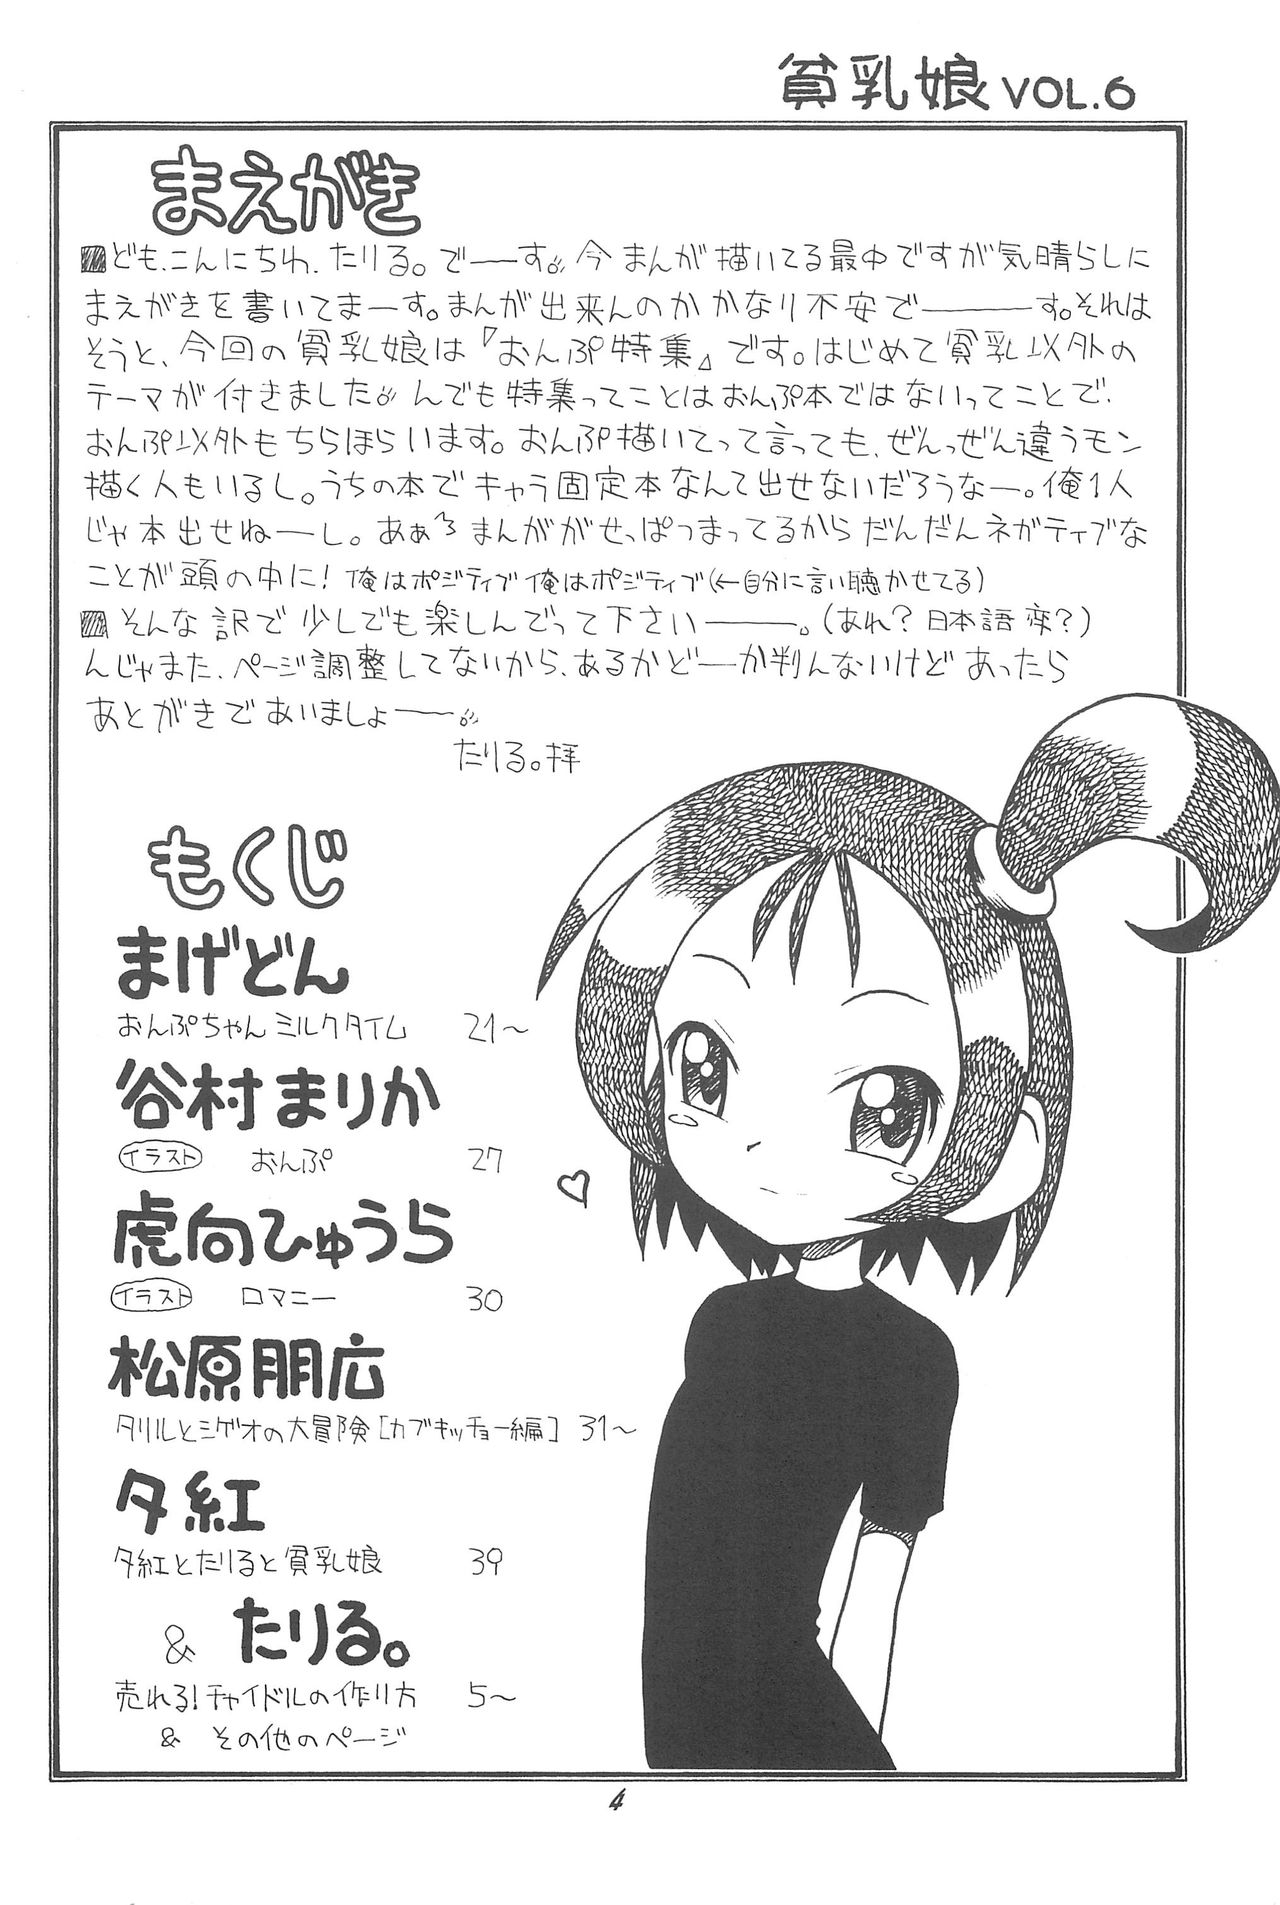 貧乳娘 VOL.6
まえがき
■ども、こんにちわ、たりる。でーーす。今まんが描いてる最中ですが気晴らしに
まえがきを書いてまーす。まんが出来んのかかなり不安でーーーす。それは
そうと、今回の貧乳娘は『おんぷ特集』です。はじめて貧乳以外の
テーマが付きました。んでも特集ってことはおんぷ本ではないってことで、
おんぷ以外もちらほらいます。おんぷ描いてって言っても、ぜんっぜん違うモン
描く人もいるし。うちの本でキャラ固定本なんて出せないだろうなー。俺1人
じゃ本出せねーーし。あぁ〜まんががせっぱつまってるからだんだんネガティブな
ことが頭の中に! 俺はポジティブ俺はポジティブ(←自分に言い聴かせてる)
■そんな訳で少しでも楽しんでって下さいーーー。(あれ? 日本語変?)
んじゃまた、ページ調整してないから、あるかどーか判んないけどあったら
あとがきであいましょーー。
たりる。拝
もくじ
まげどん
おんぷちゃんミルクタイム 21〜
谷村まりか
イラスト おんぷ 27
虎向ひゅうら
イラスト ロマニー 30
松原朋広
タリルとシゲオの大冒険[カブキッチョー編] 31〜
夕紅
夕紅とたりると貧乳娘 39
& たりる。
売れる!チャイドルの作り方 5〜
& その他のページ
4